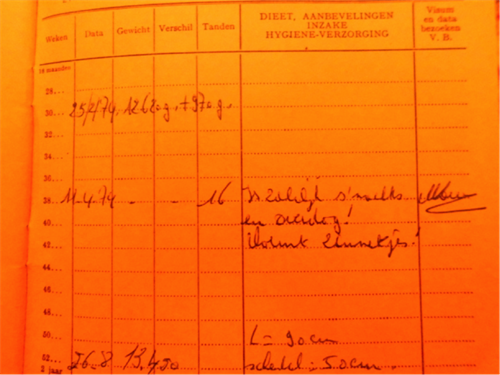 Weken Data Gewicht Verschil Tanden DIEET, AANBEVELINGEN INZAKE HYGIENE-VERZORGING Visum en data bezoeken V. B.
14 maanden
28...
25/1/74. 12620g. +970g.
30...
32...
34...
36...
38... 11-4-74 - - 16
en
40...
42... Vormt zinnetjes!
44...
46...
48...
50... L = 90cm
52... 26-8 13,450 schedel = 50cm.
2 jaar